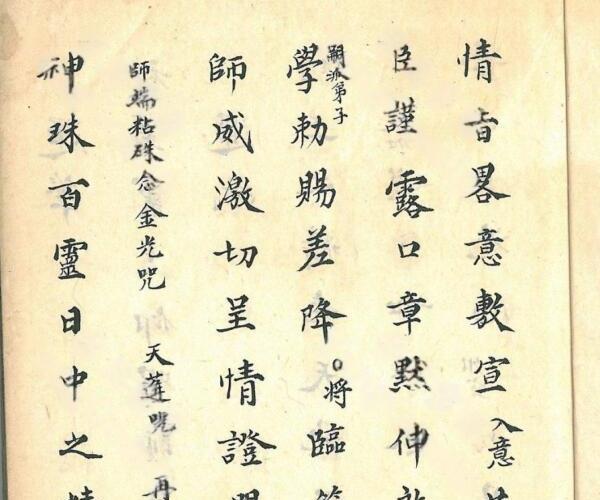 情旨畧意敷宣入意
臣謹露口章默伸
嗣派弟子
學勅賜差降○将臨
師威激切呈情證明
師端粘硃念金光咒 天蓬咒 再
神珠百靈日中之精